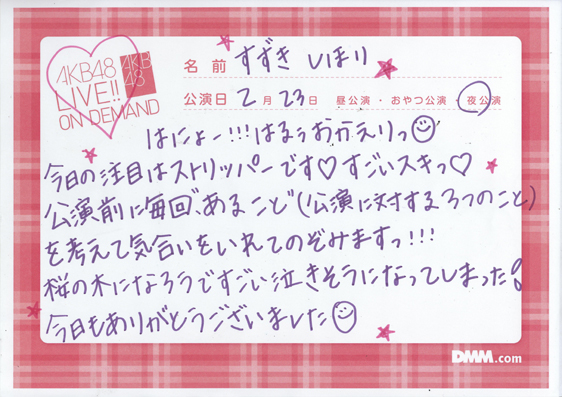 AKB48
LIVE!!
ON DEMAND
AKB
48
名前 すずき しほり
公演日 2月23日 昼公演・おやつ公演・夜公演
はにょー!!!はるぅおかえりっ
今日の注目はストリッパーです♡すごいスキっ♡
公演前に毎回、あること(公演に対する3つのこと)
を考えて気合いをいれてのぞみますっ!!!
桜の木になろうですごい泣きそうになってしまった!
今日もありがとうございました
DMM.com